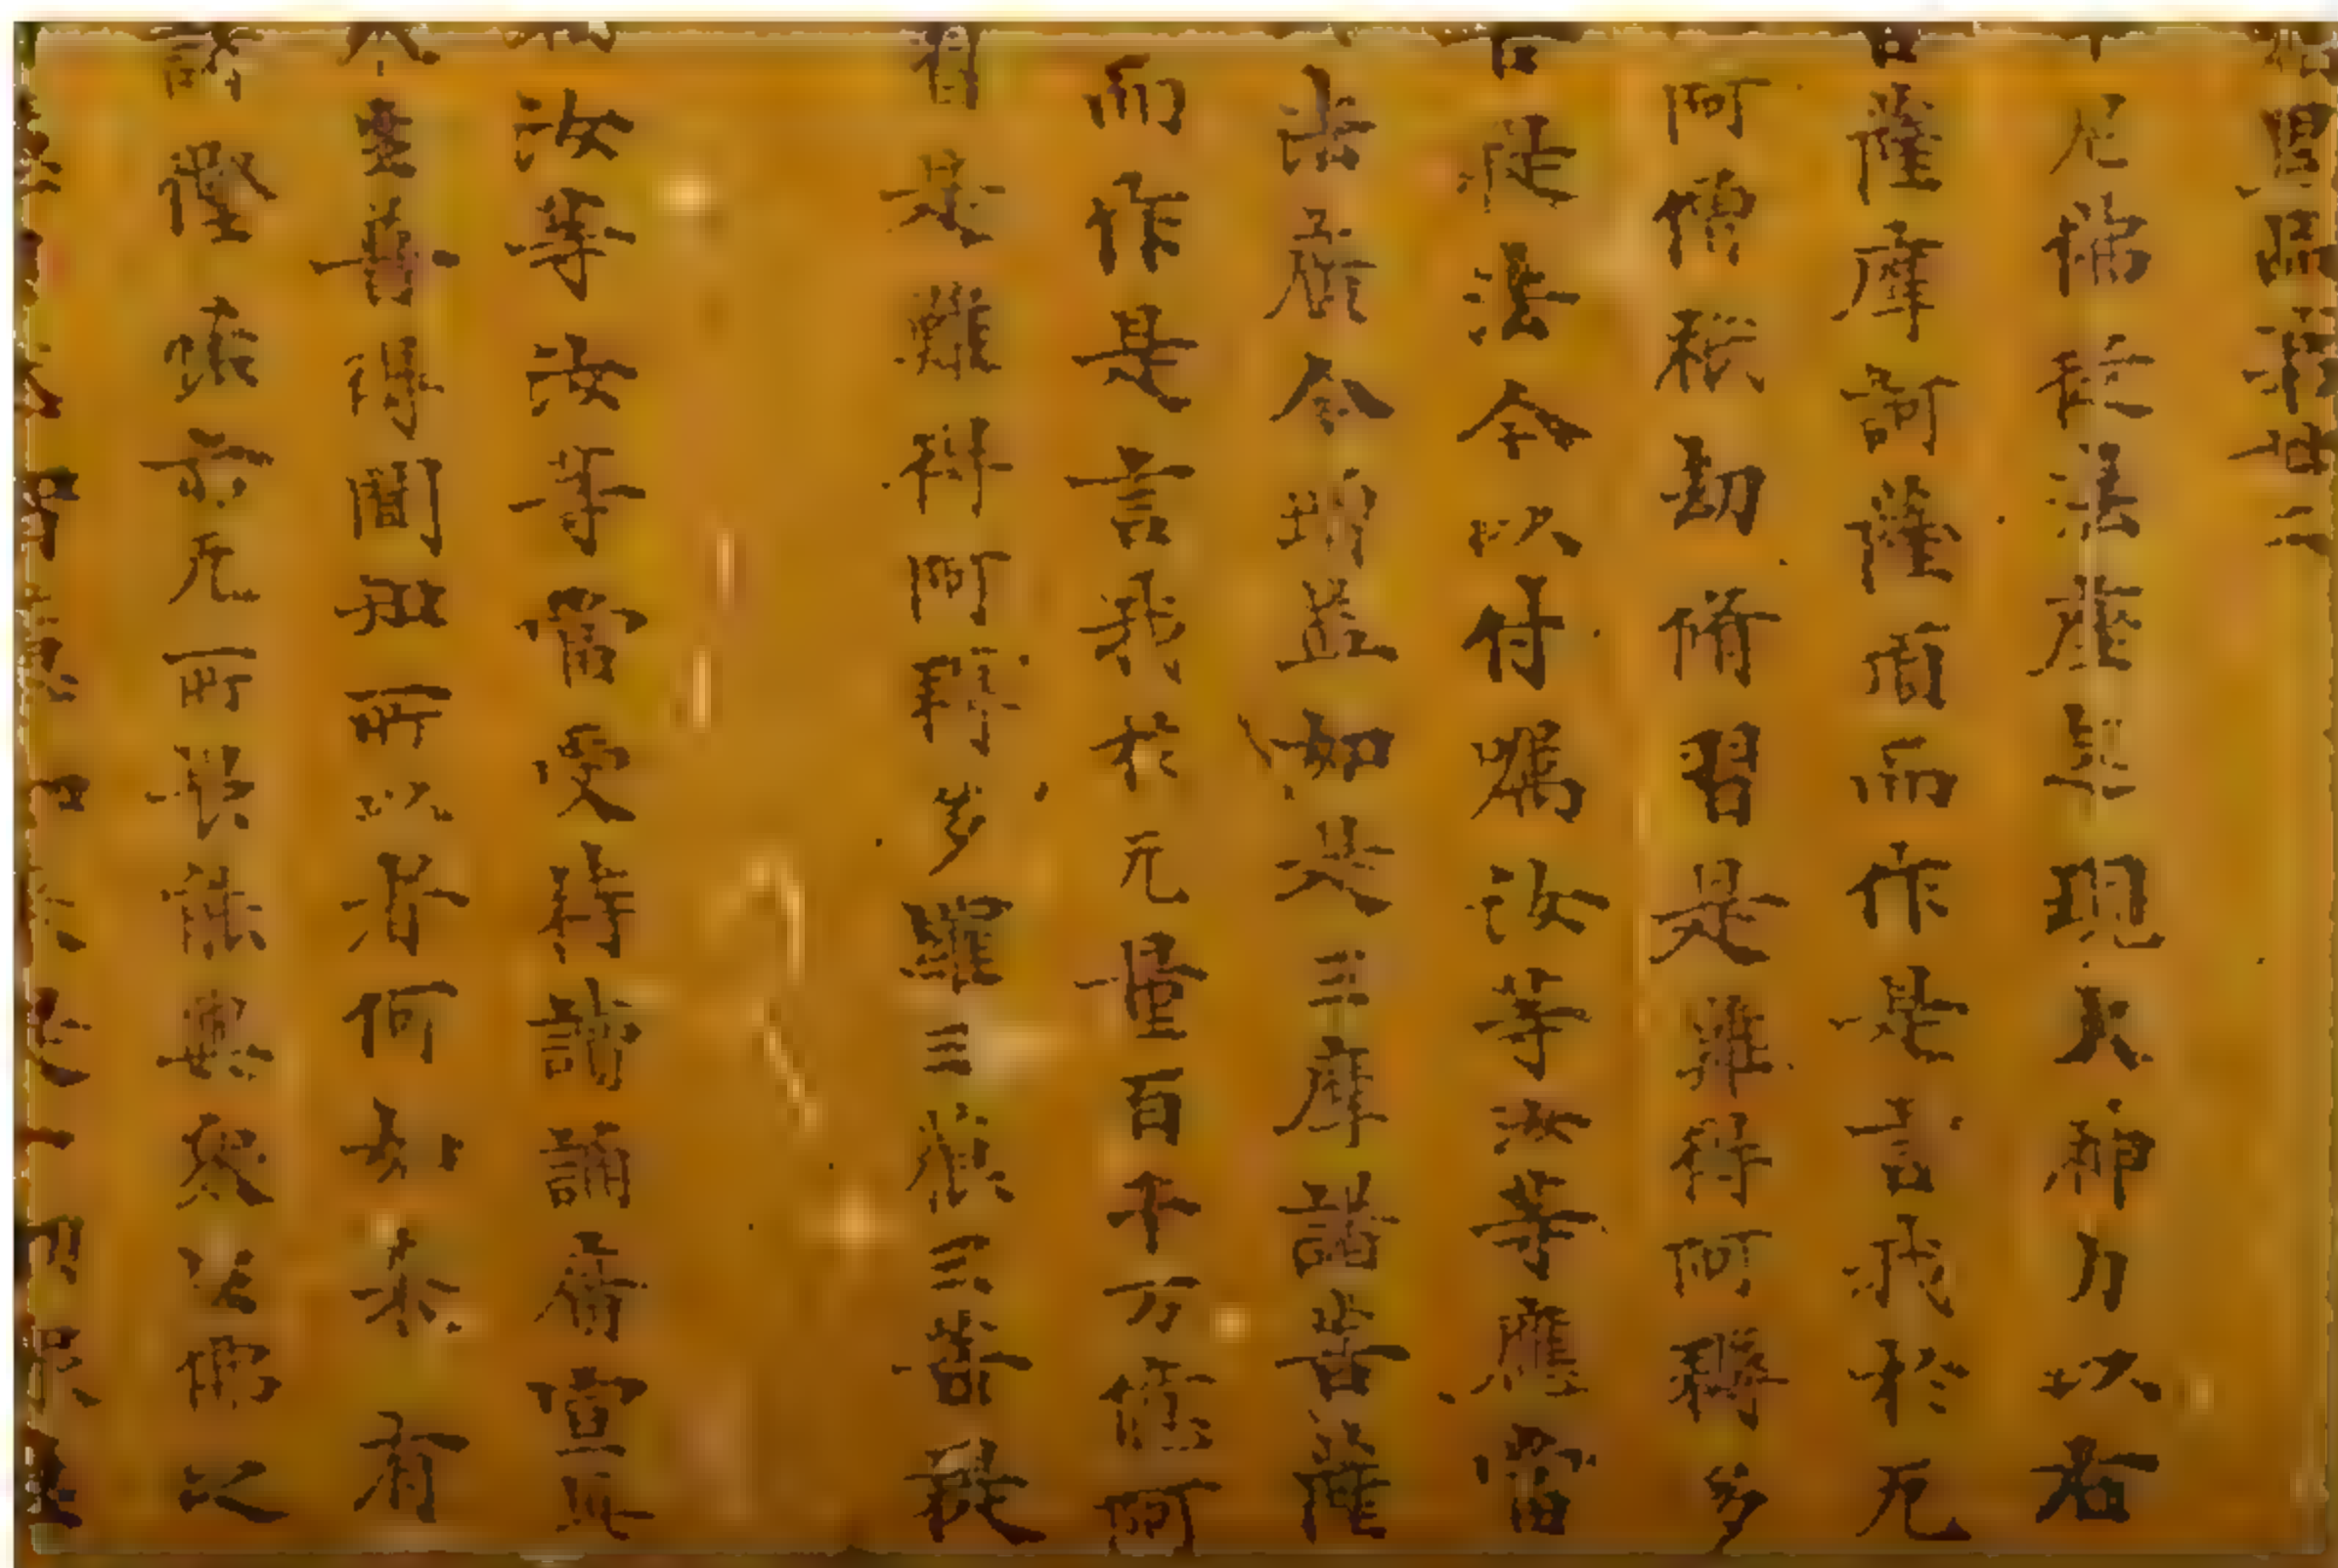 累品第廿二
尼佛從法座起現大神力以右
薩摩訶薩頂而作是言我於无
阿僧祇劫脩習是難得阿耨多
提法今以付囑汝等汝等應當
法廣令增益如是三摩諸菩薩
而作是言我於无量百千万億阿
習是難得阿耨多羅三藐三菩提
汝等汝等當受持讀誦廣宣此
生普得聞知所以者何如來有
諸慳悋亦无所畏能與衆生佛之
慧如來是一切衆生